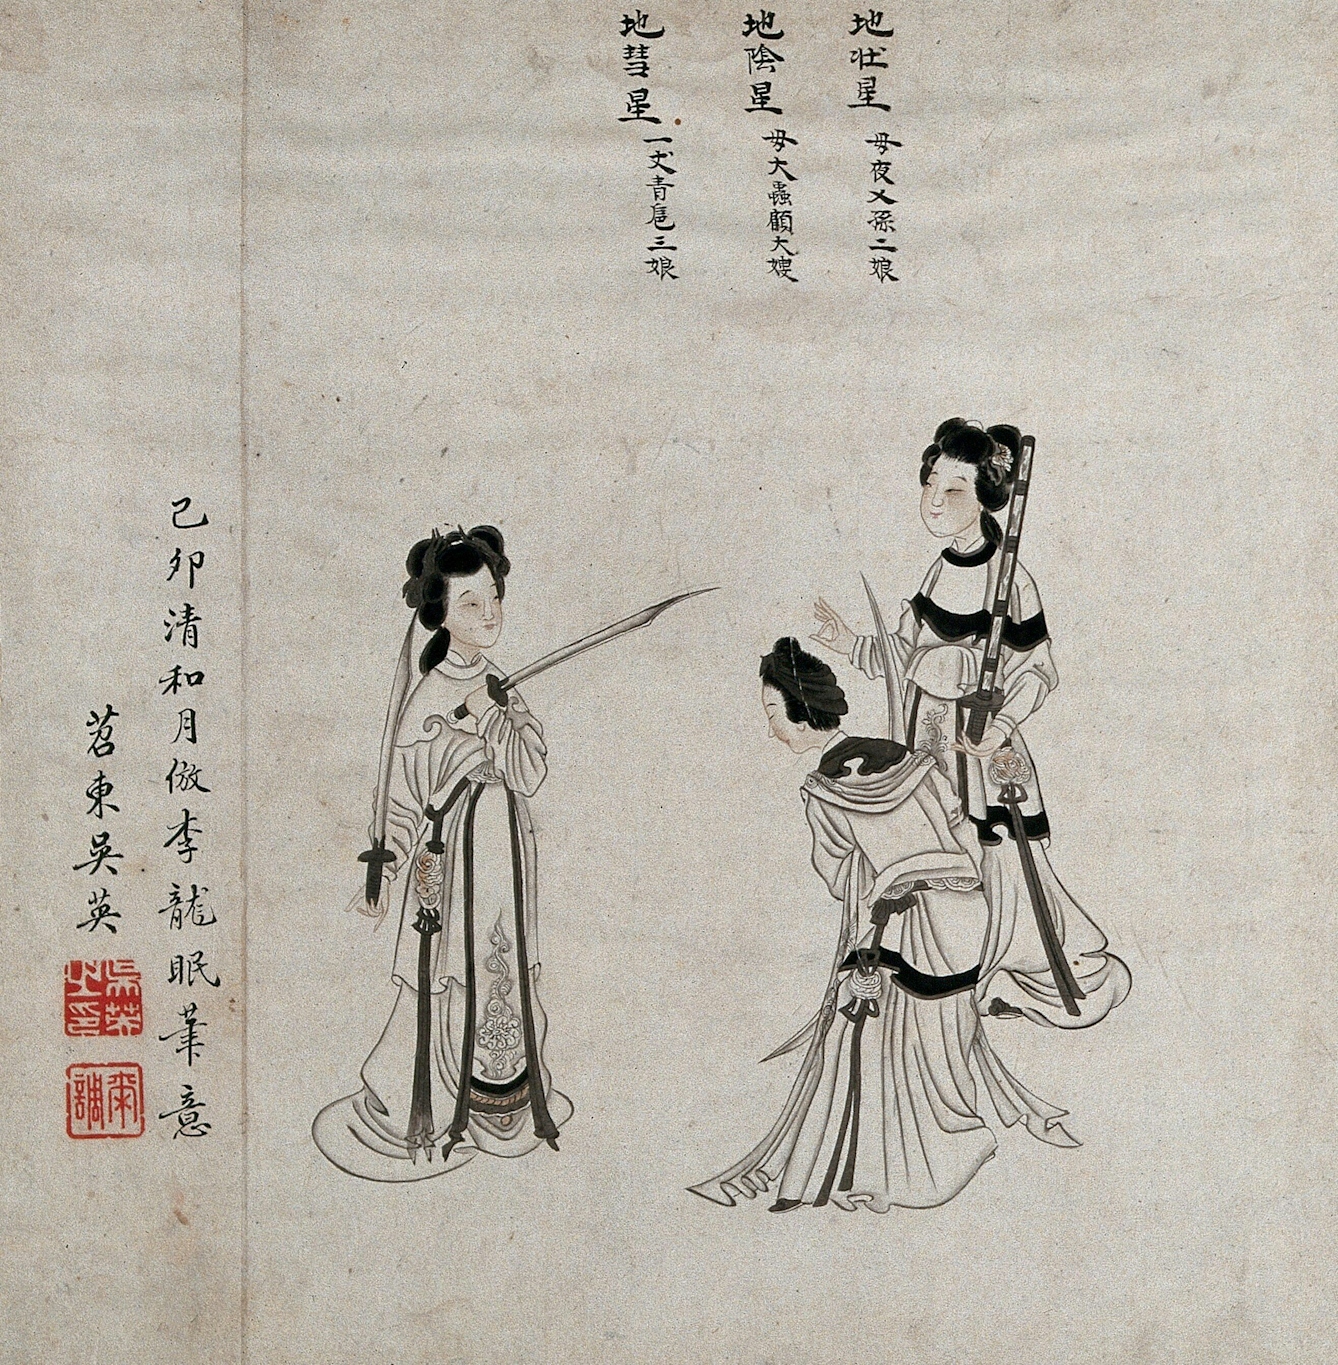 地壮星 母夜乂孫二娘
地陰星 母大蟲顧大嫂
地彗星 一丈青扈三娘
己卯清和月倣李龍眠筆意
苕東吳英
吳英之印